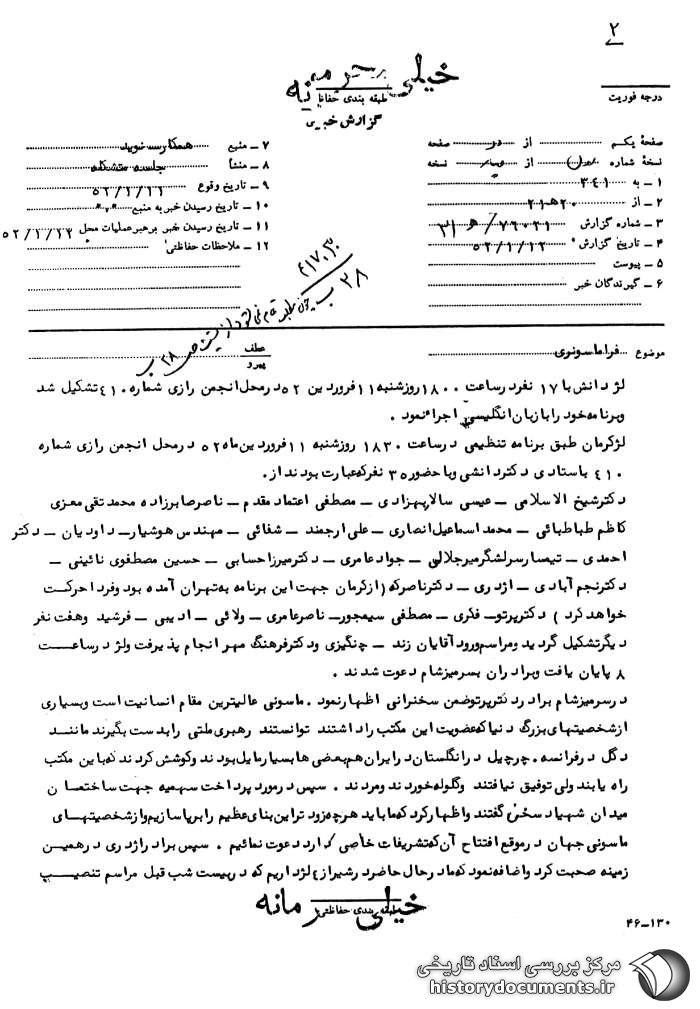 ۲
خیلی محرمانه
درجه فوریت
طبقه بندی حفاظتی
گزارش خبری
صفحهٔ یکم از در صفحه
نسخهٔ شماره از نسخه
۱ ـ به ۳٤۱
۲ ـ از ۲۰ هـ ۲۱
۳ ـ شماره گزارش ۷۶۰۲۱/ هـ ۳۱
۴ ـ تاریخ گزارش ۵۲/۱/۱۲
۵ ـ پیوست
۶ ـ گیرندگان خبر
۷ ـ منبع همکار سـ نوید
۸ ـ منشأ جلسه متشکله
۹ ـ تاریخ وقوع ۵۲/۱/۱۱
۱۰ ـ تاریخ رسیدن خبر به منبع
۱۱ ـ تاریخ رسیدن خبر برهبر عملیات محل ۵۲/۱/۱۲
۱۲ ـ ملاحظات حفاظتی
۲۸ ب
موضوع فراماسونری
عطف
پیرو
لژ دانش با ۱۷ نفر در ساعت ۱۸۰۰ روز شنبه ۱۱ فروردین ۵۲ در محل انجمن رازی شماره ٤۱۰ تشکیل شد
و برنامه خود را با زبان انگلیسی اجرا نمود .
لژ کرمان طبق برنامه تنظیمی در ساعت ۱۸۳۰ روز شنبه ۱۱ فروردین ماه ۵۲ در محل انجمن رازی شماره
٤۱۰ با ستادی دکتر دانشی و با حضور ۳۵ نفر که عبارت بودند از .
دکتر شیخ الاسلامی ـ عیسی سالار بهزادی ـ مصطفی اعتماد مقدم ـ ناصر صابرزاده محمد تقی معزی
کاظم طباطبائی ـ محمد اسماعیل انصاری ـ علی ارجمند ـ شفائی ـ مهندس هوشیار ـ داودیان ـ دکتر
احمدی ـ تیمسار سرلشگر میرجلالی ـ جواد عامری ـ دکتر میرزا حسابی ـ حسین مصطفوی نائینی ـ
دکتر نجم آبادی ـ اژدری ـ دکتر ناصر که ( از کرمان جهت این برنامه به تهران آمده بود و فردا حرکت
خواهد کرد ) دکتر پرتو ـ فکری ـ مصطفی سیمجور ـ ناصر عامری ـ ولائی ـ ادیبی ـ فرشید و هفت نفر
دیگر تشکیل گردید و مراسم ورود آقایان زند ـ چنگیزی و دکتر فرهنگ مهر انجام پذیرفت و لژ در ساعت
۸ پایان یافت و برادران بسر میز شام دعوت شدند .
در سر میز شام برادر دکتر پرتو ضمن سخنرانی اظهار نمود . ماسونی عالیترین مقام انسانیت است و بسیاری
از شخصیتهای بزرگ دنیا که عضویت این مکتب را داشتند توانستند رهبری ملتی را بدست بگیرند مانند
دگل در فرانسه . چرچیل در انگلستان در ایران هم بعضی ها بسیار مایل بودند و کوشش کردند که با این مکتب
راه یابند ولی توفیق نیافتند و گلوله خوردند و مردند . سپس در مورد پرداخت سهمیه جهت ساختمان
میدان شهیاد سخن گفتند و اظهار کرد که ما باید هرچه زودتر این بنای عظیم را برپا سازیم و از شخصیتهای
ماسونی جهان در موقع افتتاح آن که تشریفات خاصی دارد دعوت نمائیم . سپس برادر اژدری در همین
زمینه صحبت کرد و اضافه نمود که ما در حال حاضر در شیراز ٤ لژ داریم که در بیست شب قبل مراسم تنصیب
خیلی محرمانه
طبقه بندی حفاظتی
۴۶ـ۱۳۰
مرکز بررسی اسناد تاریخی
historydocuments.ir